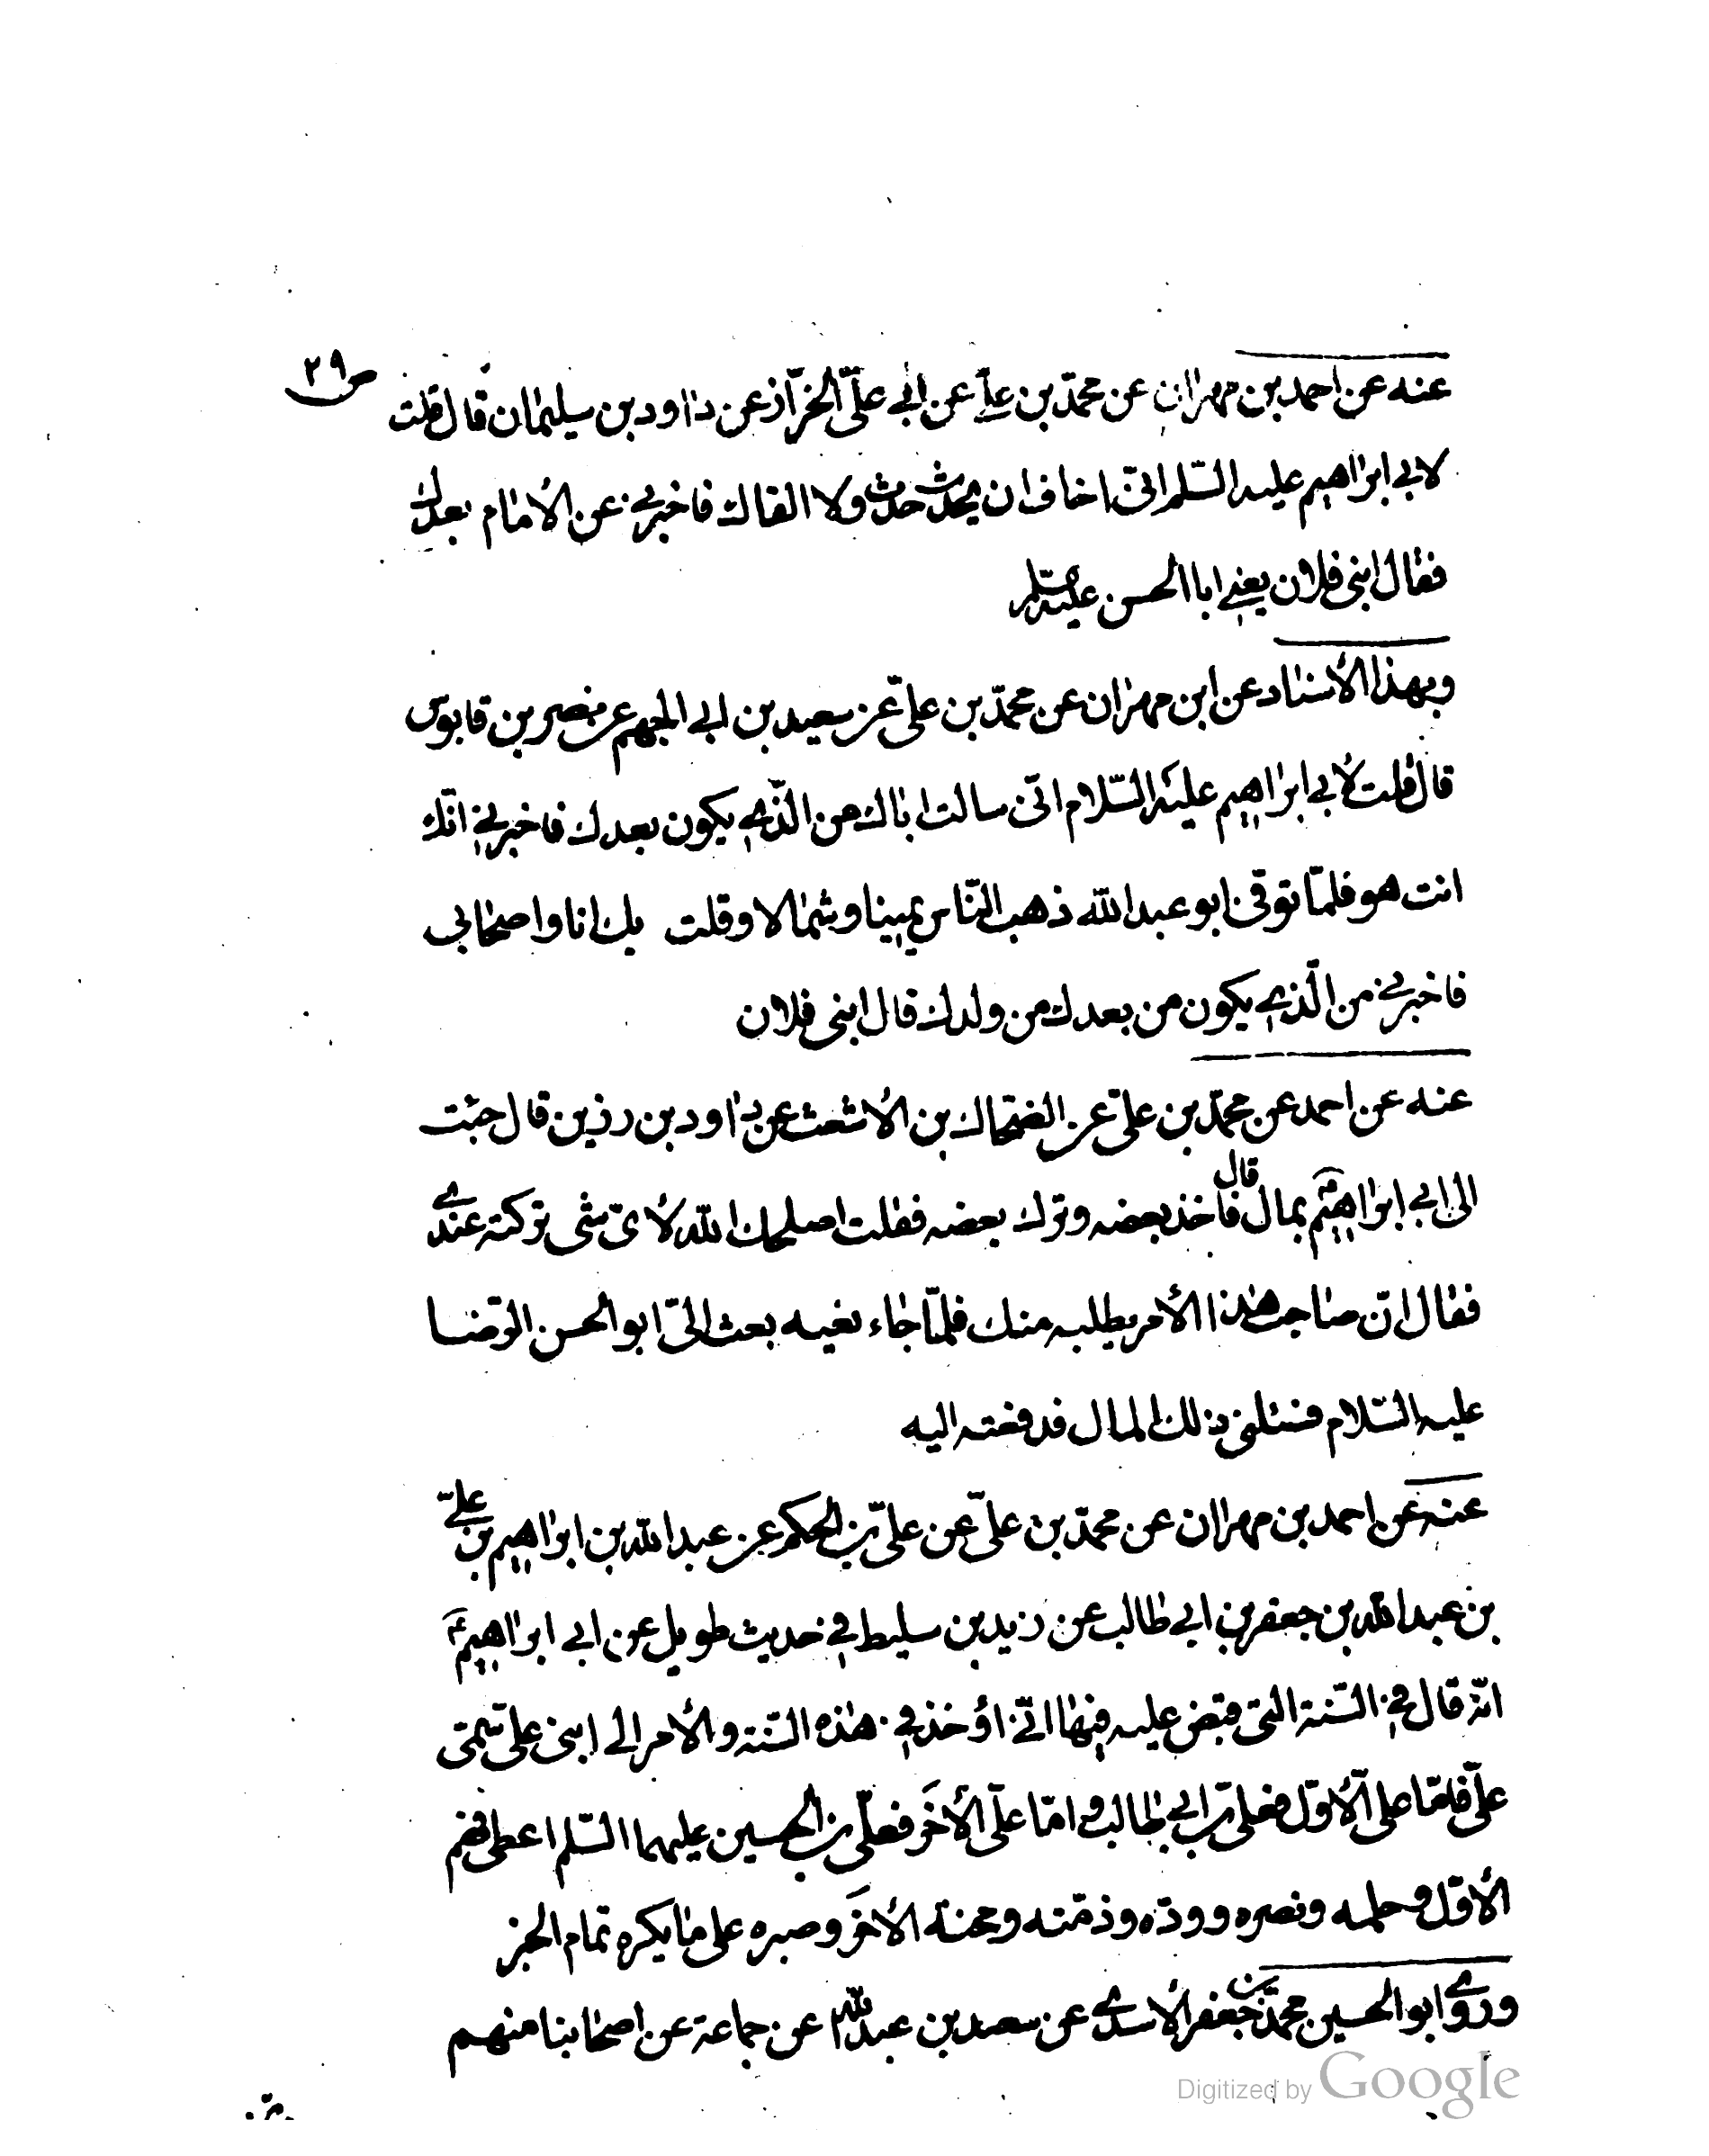 ص ٢٩
عنه عن احمد بن مهران عن محمّد بن علي عن ابي عليّ الخرّاز عن داود بن سليمان قال قلت
لابي ابراهيم عليه السّلم انّي اخاف ان يحدث حدث ولا القاك فاخبرني عن الأمام بعدك
فقال ابني فلان يعني ابا الحسن عليه السّلم
وبهذا الأسناد عن ابن مهران عن محمّد بن عليّ عن سعيد بن ابي الجهم عن نصر بن قابوس
قال قلت لأبي ابراهيم عليه السّلام انّي سالت اباك من الّذي يكون بعدك فاخبرني انّك
انت هو فلمّا توفّي ابو عبد الله ذهب النّاس يمينا وشمالا وقلت بك انا واصحابي
فاخبرني من الّذي يكون من بعدك من ولدك قال ابني فلان
عنه عن احمد عن محمّد بن عليّ عن الضحّاك بن الأشعث عن داود بن رزين قال جئت
الى ابي ابراهيم بمال قال فاخذ بعضه وترك بعضه فقلت اصلحك الله لأيّ شى تركته عندي
فقال انّ صاحب هذا الأمر يطلبه منك فلمّا جاء نعيه بعث الىّ ابو الحسن الرّضا
عليه السّلام فسئلني ذلك المال فدفعته اليه
عنه عن احمد بن مهران عن محمّد بن عليّ عن عليّ بن الحكم عن عبد الله بن ابراهيم بن عليّ
بن عبد الله بن جعفر بن ابي طالب عن زيد بن سليط في حديث طويل عن ابي ابراهيم
انّه قال في السّنة التي قبض عليه فيها انّي اؤخذ في هذه السّنة والأمر الى ابني عليّ سمّى
عليّ فامّا عليّ الأوّل فعليّ بن ابي طالب وامّا عليّ الأخَر فعليّ بن الحسين عليهما السّلم اعطى فهم
الأوّل وحلمه ونصره وودّه وذمّته ومحنة الأخَر وصبره على ما يكره تمام الخبر
وروي ابو الحسين محمّد بن جعفر الأسدي عن سعد بن عبد الله عن جماعة عن اصحابنا منهم
Digitized by Google